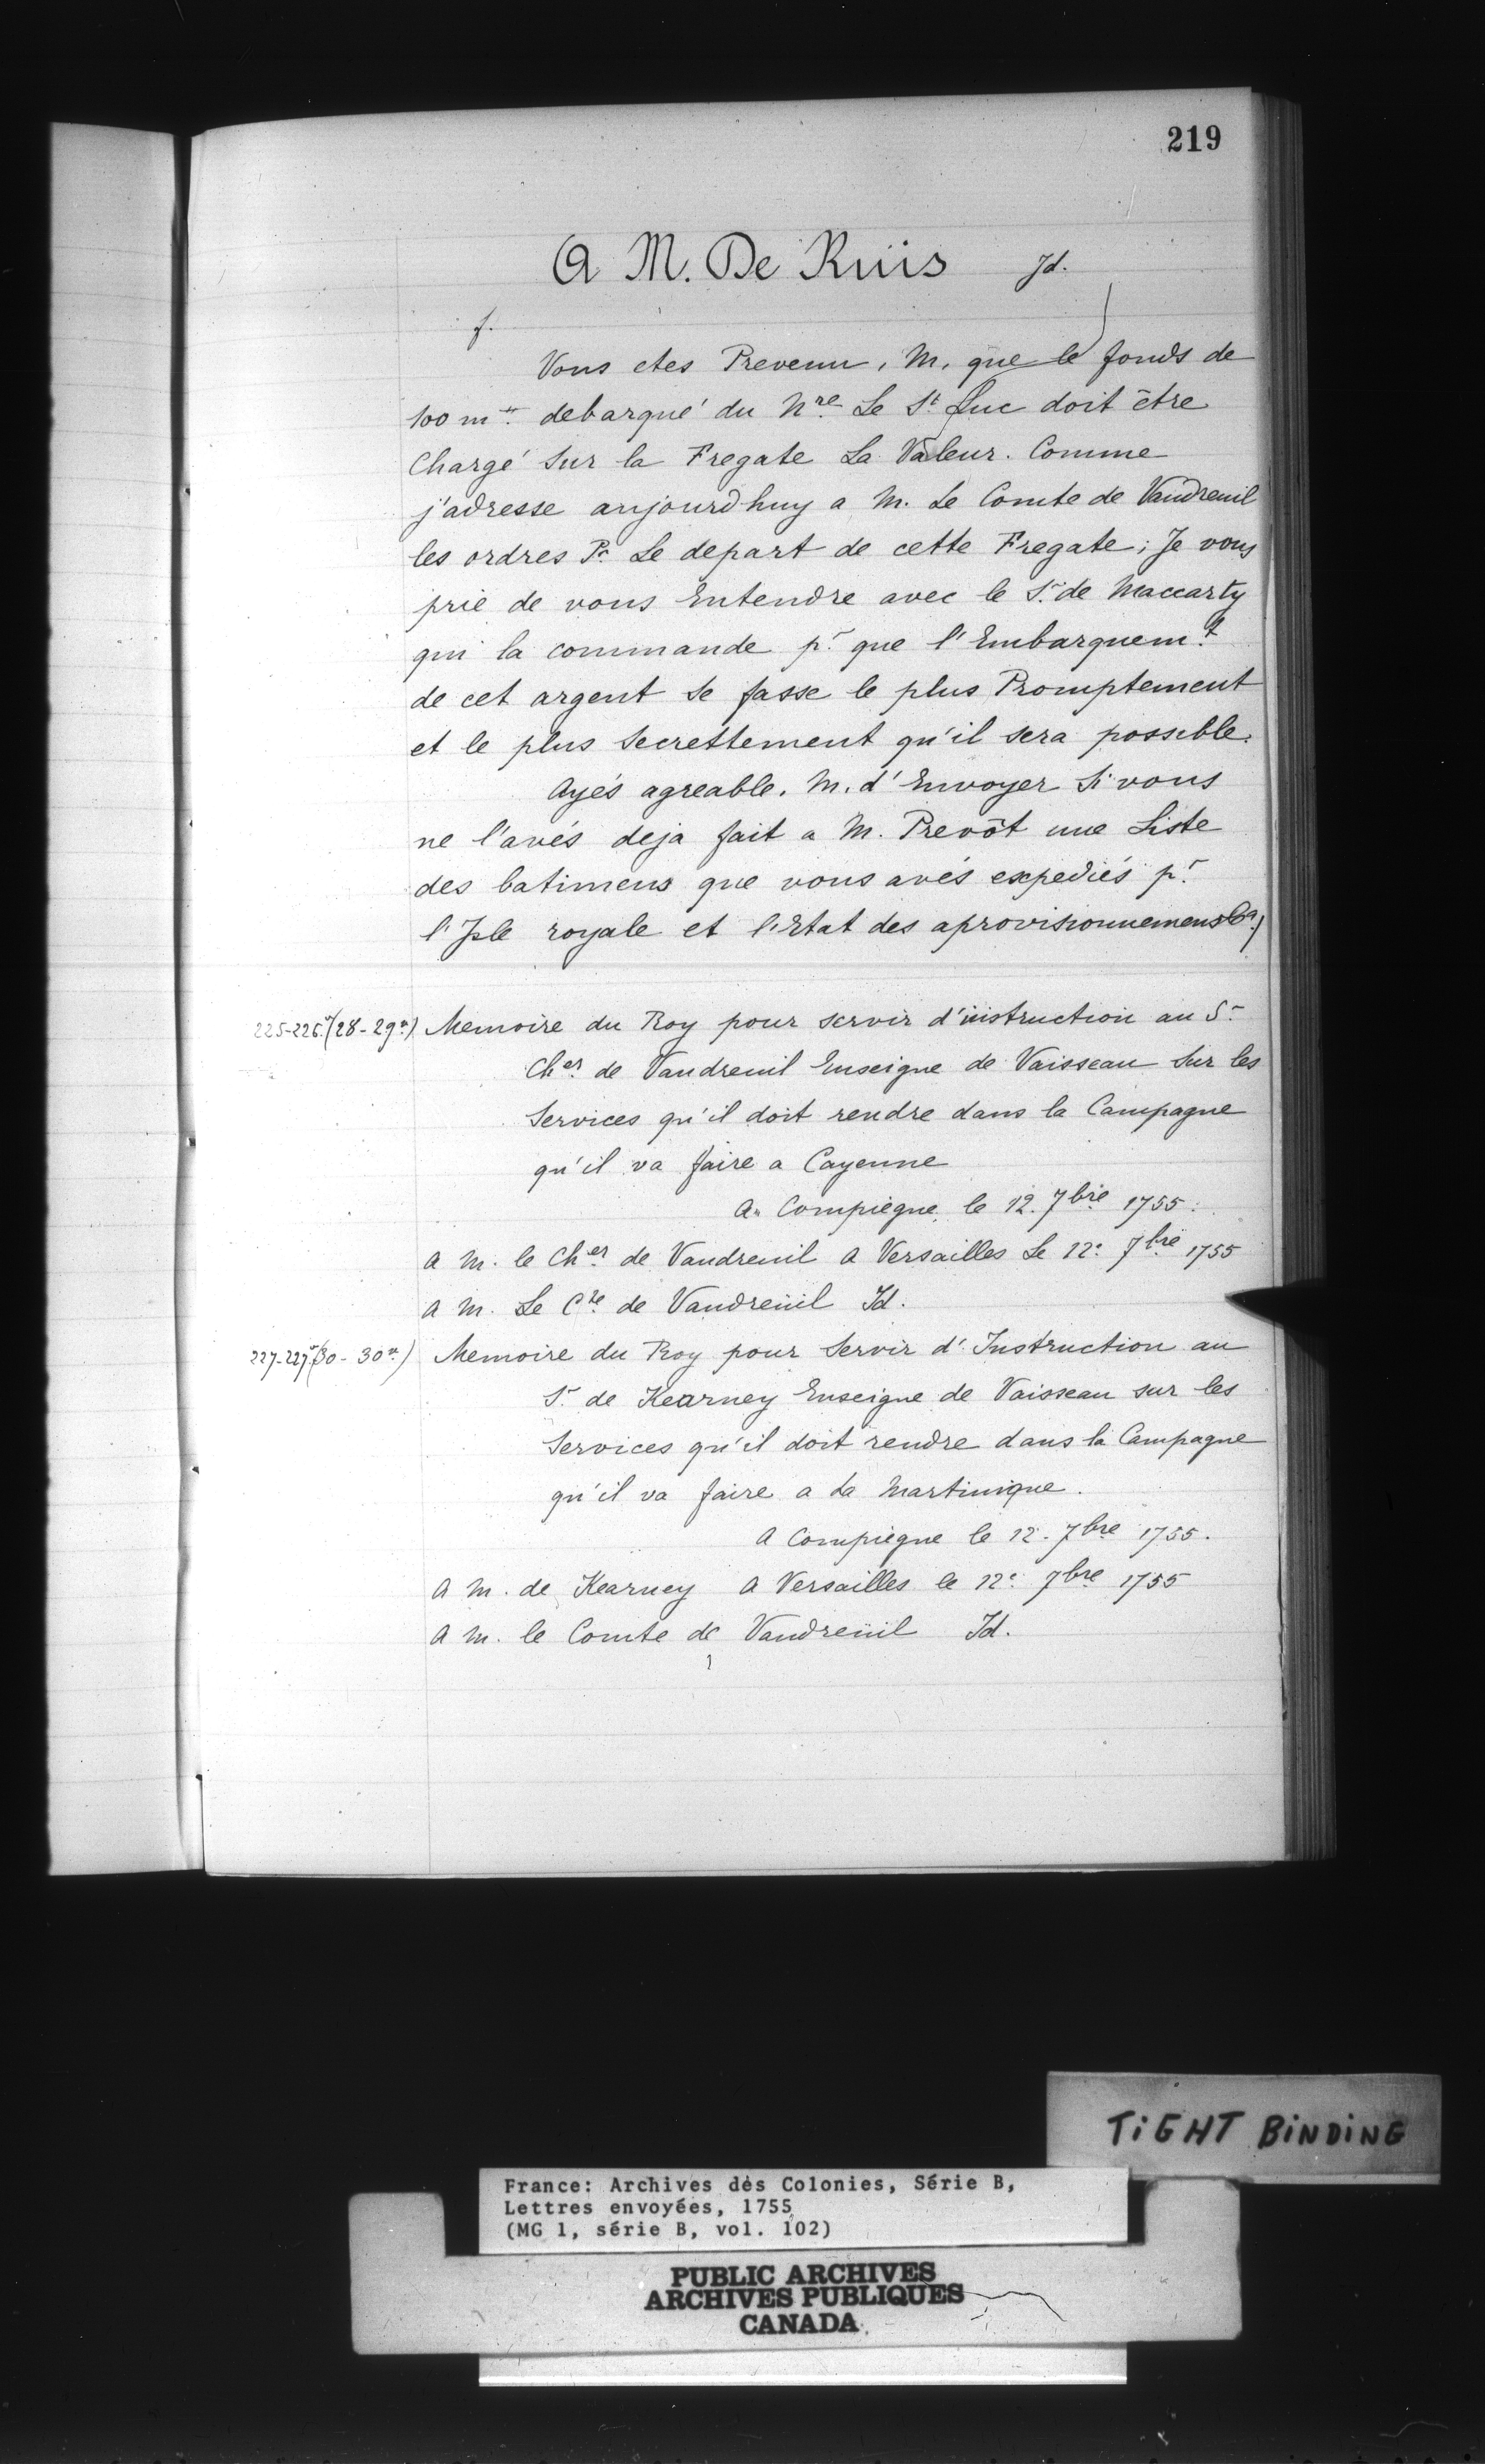 219
A M. De Ruis Id.
f.
Vous etes Prevenu, M. que le fonds de
100 m ᵗᵗ debarqué du Nre Le St Luc doit être
Chargé Sur la Fregate La Valeur. Comme
j'adresse aujourd'huy a M. Le Comte de Vaudreuil
les ordres Pr. Le depart de cette Fregate; Je vous
prie de vous Entendre avec le Sr. de Maccarty
qui la commande pr. que l'Embarquemt
de cet argent Se fasse le plus Promptement
et le plus Secrettement qu'il sera possible.
Ayés agreable, M. d'Envoyer Si vous
ne l'avés deja fait a M. Prevôt une Liste
des batimens que vous avés expediés pr.
l'Isle royale et l'Etat des aprovisionnemens &a.)
225-226.v(28-29v.) Memoire du Roy pour servir d'instruction au Sr.
Cher. de Vaudreuil Enseigne de Vaisseau Sur les
Services qu'il doit rendre dans la Campagne
qu'il va faire a Cayenne
A. Compiegne le 12. 7bre 1755.
A M. le Cher. de Vaudreuil A Versailles Le 12e. 7bre 1755
A M. Le Cte. de Vaudreüil Id.
227-227v(30-30v.) Memoire du Roy pour Servir d'Instruction au
Sr. de Kearney Enseigne de Vaisseau sur les
Services qu'il doit rendre dans la Campagne
qu'il va faire a La Martinique.
A Compiegne le 12. 7bre 1755.
A M. de Kearney A Versailles le 12e. 7bre 1755
A M. le Comte de Vaudreüil Id.
TiGHT BiNDiNG
France: Archives des Colonies, Série B,
Lettres envoyées, 1755
(MG 1, série B, vol. 102)
PUBLIC ARCHIVES
ARCHIVES PUBLIQUES
CANADA